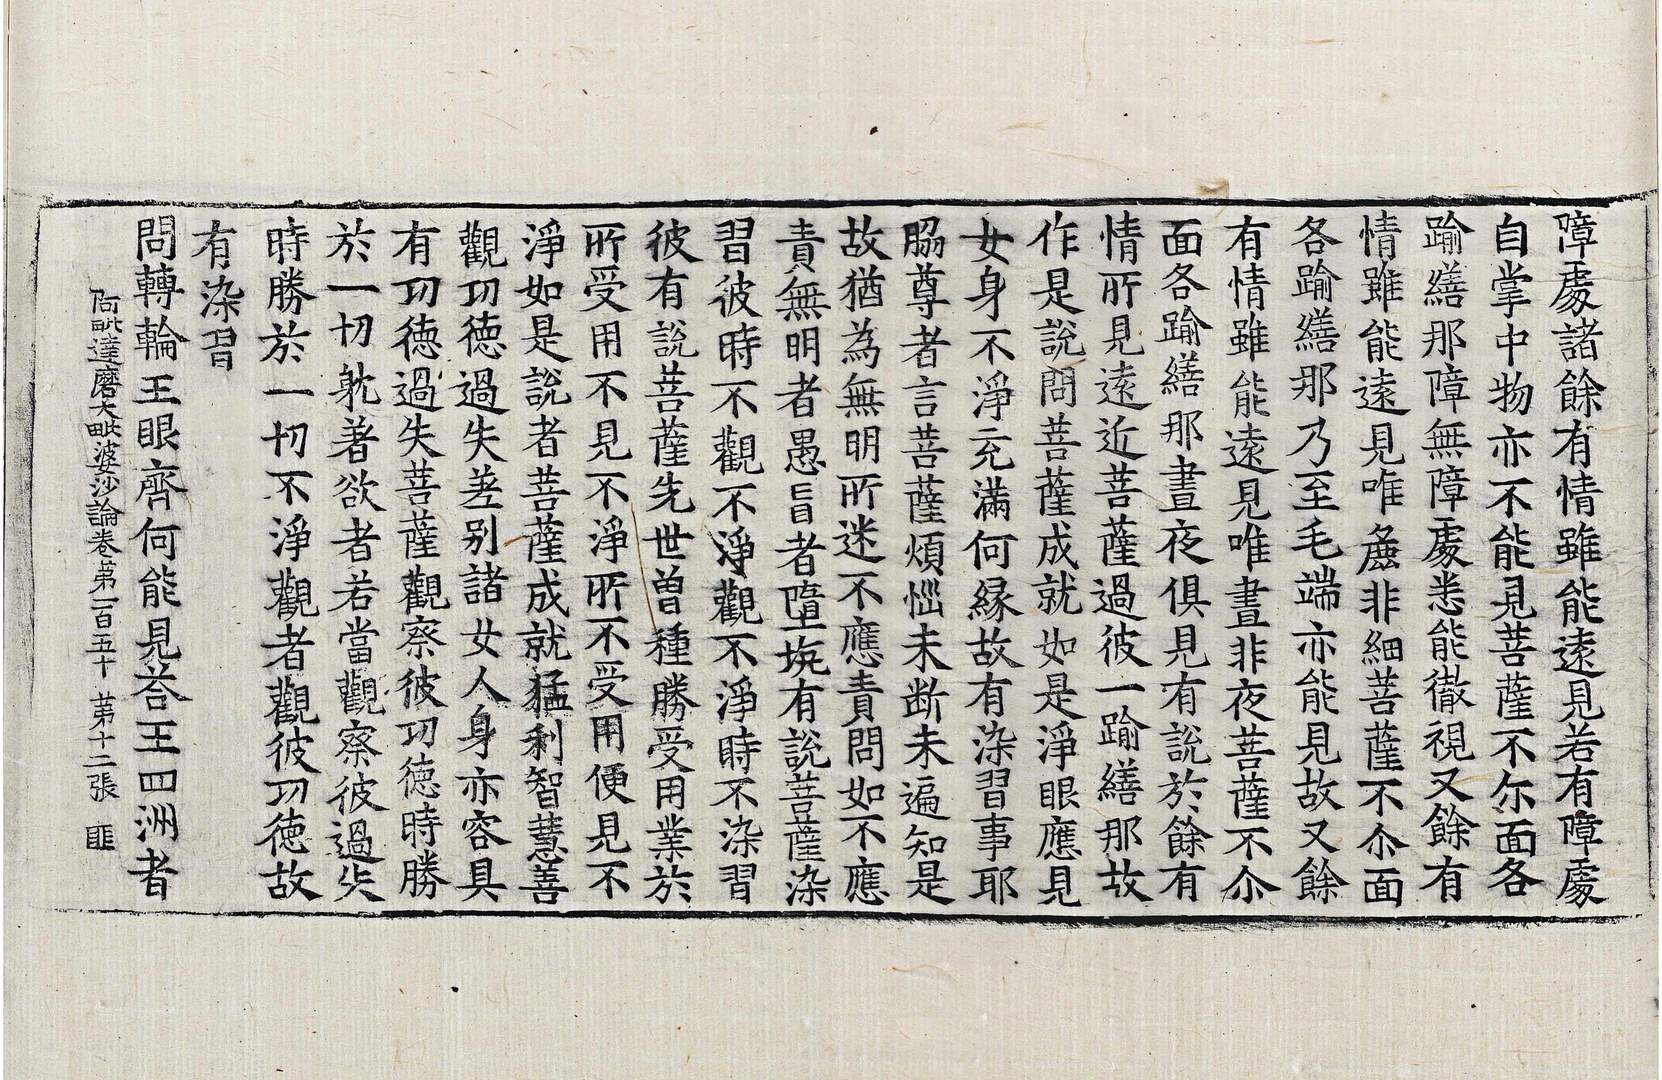 障處諸餘有情雖能遠見若有障處
自掌中物亦不能見菩薩不尓面各
踰繕那障無障處悉能徹視又餘有
情雖能遠見唯麁非細菩薩不尒面
各踰繕那乃至毛端亦能見故又餘
有情雖能遠見唯晝非夜菩薩不尒
面各踰繕那晝夜俱見有說於餘有
情所見遠近菩薩過彼一踰繕那故
作是說問菩薩成就如是淨眼應見
女身不淨充滿何緣故有染習事耶
脇尊者言菩薩煩惱未断未遍知是
故猶為無明所迷不應責問如不應
責無明者愚盲者墮坑有說菩薩染
習彼時不觀不淨觀不淨時不染習
彼有說菩薩先世曽種勝受用業於
所受用不見不淨所不受用便見不
淨如是說者菩薩成就猛利智慧善
觀功德過失差别諸女人身亦容具
有功德過失菩薩觀察彼功德時勝
於一切躭著欲者若當觀察彼過失
時勝於一切不淨觀者觀彼功德故
有染習
問轉輪王眼齊何能見荅王四洲者
阿毗達磨大毗婆沙論卷第一百五十 第十二張 匪